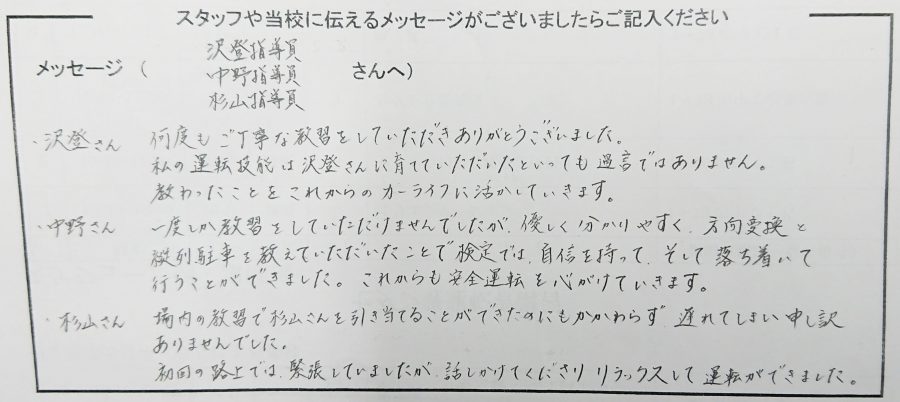 スタッフや当校に伝えるメッセージがございましたらご記入ください
沢登指導員
メッセージ ( 中野指導員 さんへ)
杉山指導員
・沢登さん 何度もご丁寧な教習をしていただきありがとうございました。
私の運転技能は沢登さんに育てていただいたといっても過言ではありません。
教わったことをこれからのカーライフに活かしていきます。
・中野さん 一度しか教習をしていただけませんでしたが、優しく分かりやすく、方向変換と
縦列駐車を教えていただいたことで検定では、自信を持って、そして落ち着いて
行うことができました。これからも安全運転を心がけていきます。
・杉山さん 場内の教習で杉山さんを引き当てることができたのにもかかわらず、遅れてしまい申し訳
ありませんでした。
初回の路上では、緊張していましたが、話しかけてくださりリラックスして運転ができました。